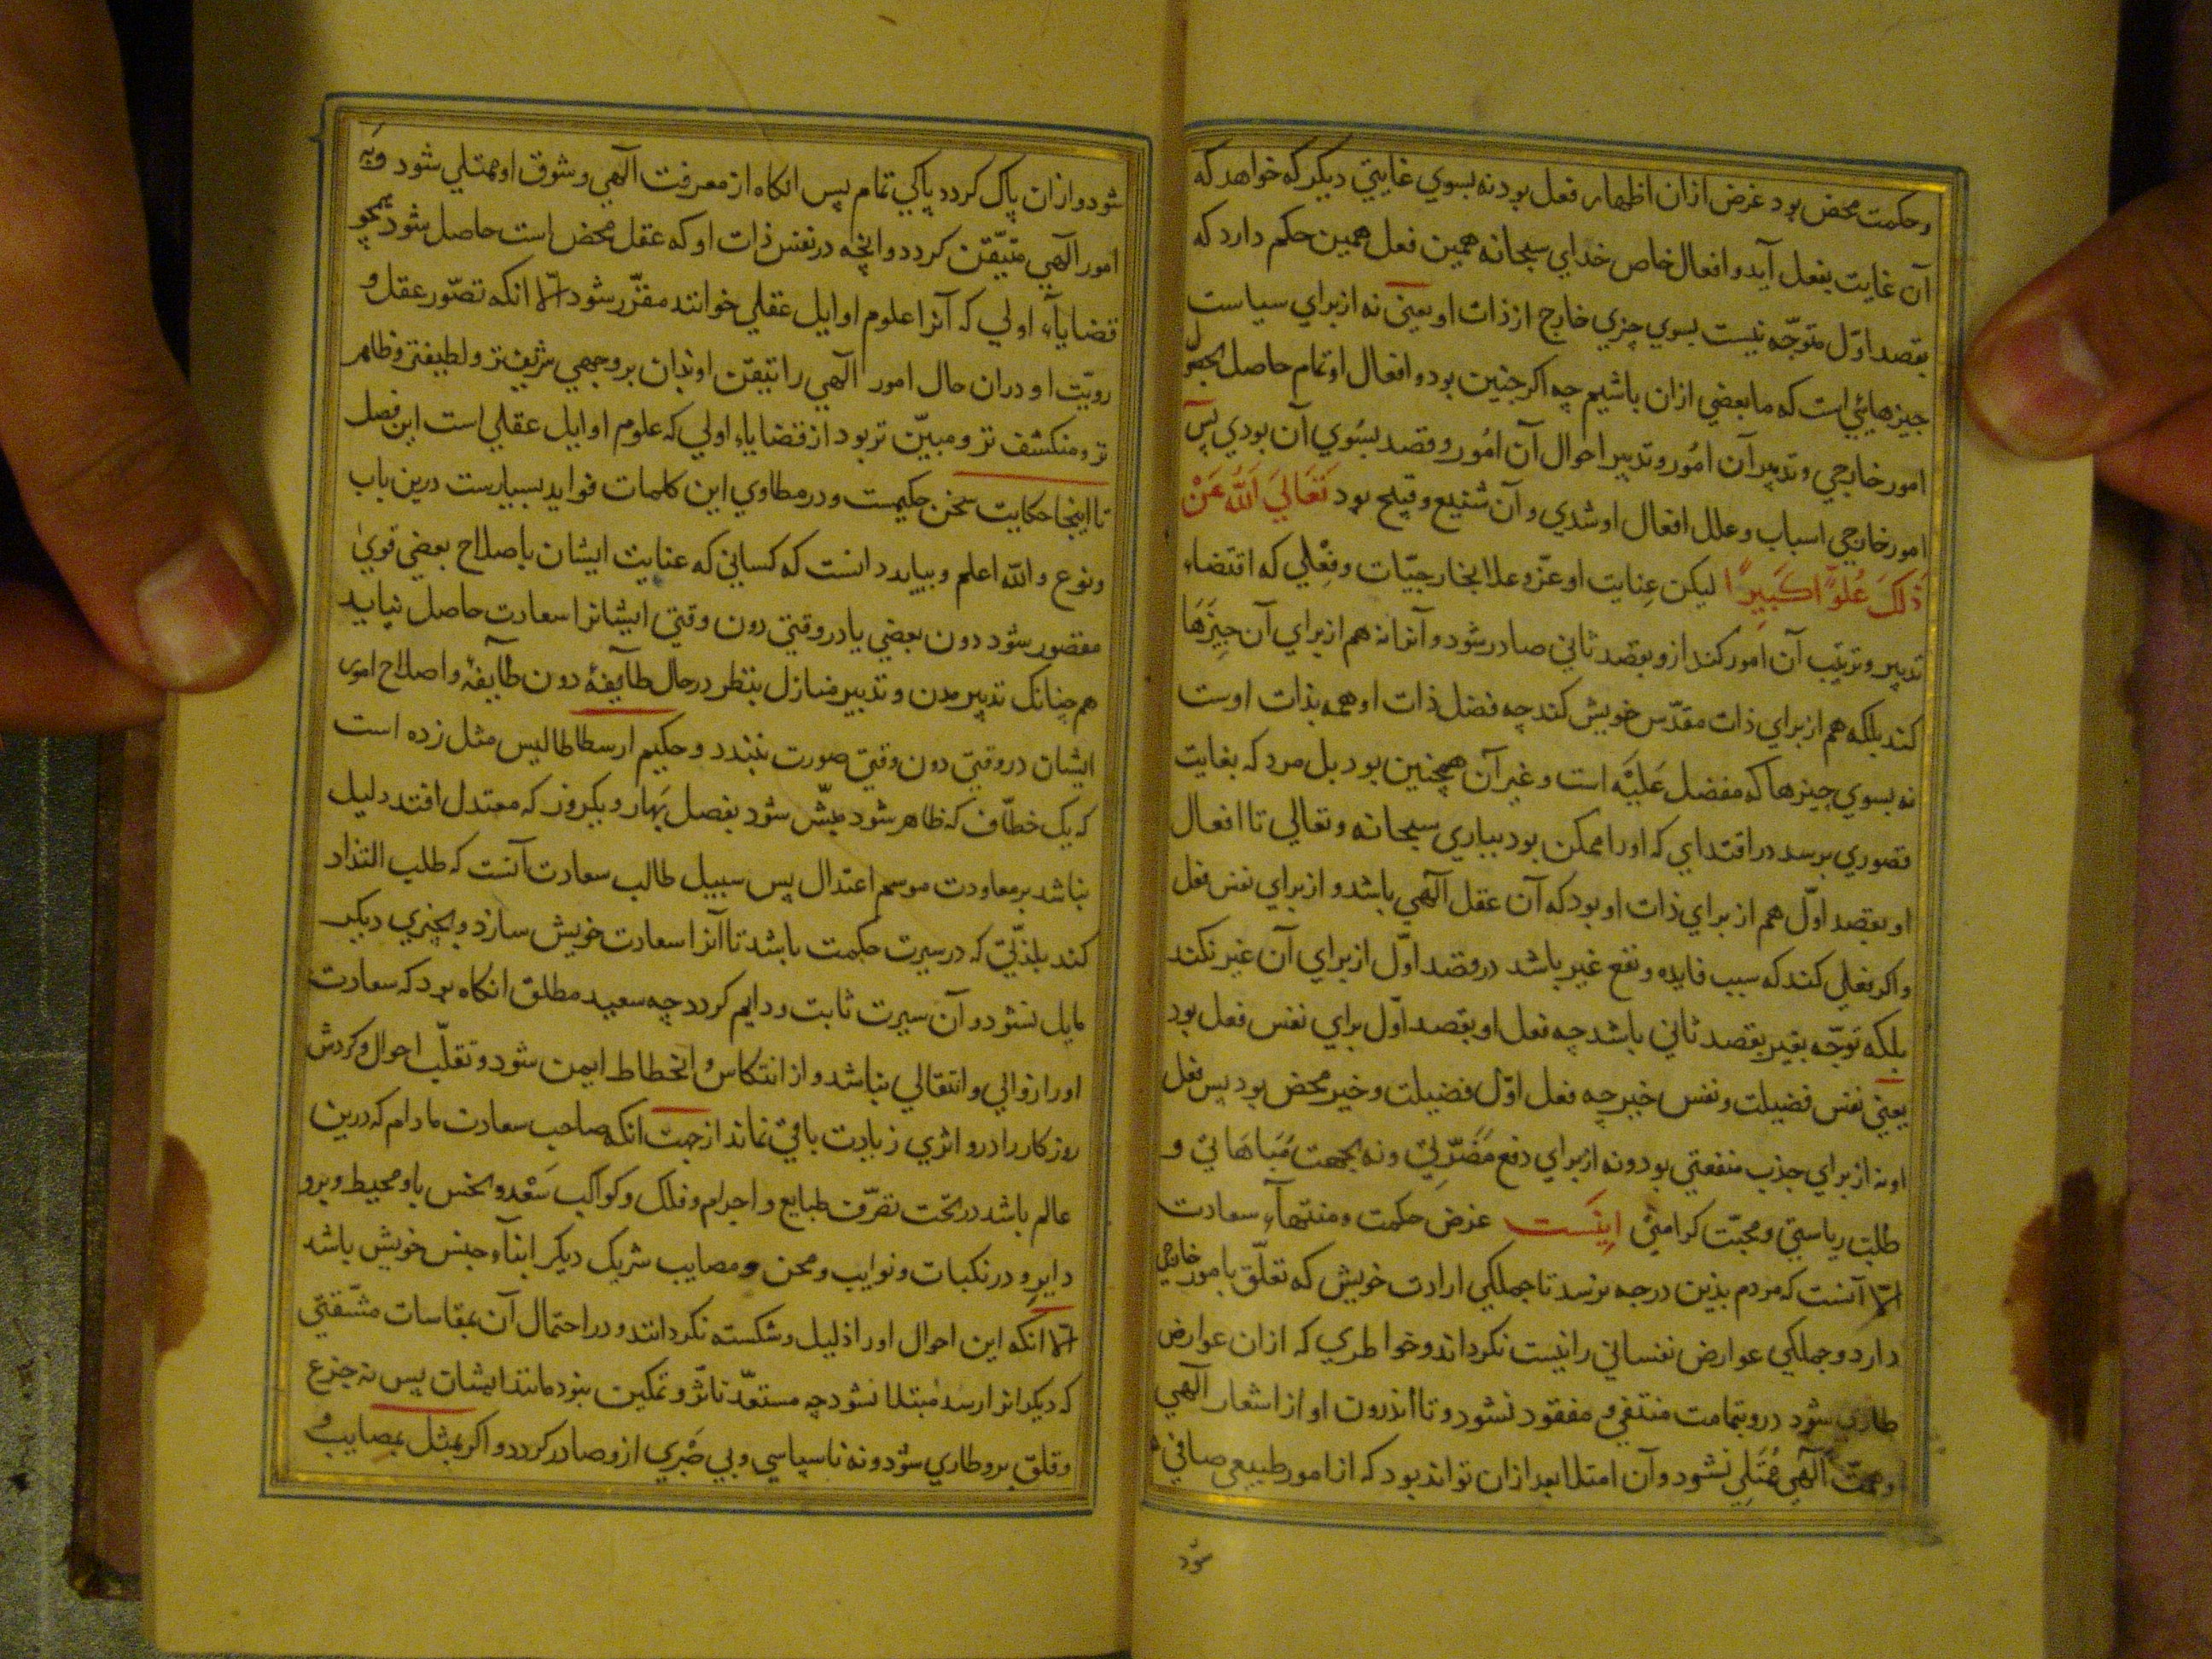 و حکمت محض بود غرض ازان اظهار فعل بود نه بسوي غايتي ديکر که خواهد که
آن غايت بفعل آيد و افعال خاص خداي سبحانه همين فعل همين حکم دارد که
بقصد اوّل متوجّه نيست بسوي چيزي خارج از ذات او يعني نه از براي سياست
چيزهايي است که ما بعضي ازان باشيم چه اکر چنين بود و افعال او تمام حاصل بحضور
امور خارجي و تدبير آن امُور و تدبير احوال آن امُور و قصد بسُوي آن بودي پس
امور خارجي اسباب و علل افعال او شدي و آن شنيع و قبيح بود تَعَاليَ اللّٰه عَنْ
ذٰلِکَ عُلُوًّا کَبِيرًا ليکن عِنايت او عزّ و علا بخارجيّات و فِعْلي که اقتضاء
تدبير و ترتيب آن امور کند ازو بقصد ثاني صادر شود و آنرا نه هم از براي آن چيزها
کند بلکه هم از براي ذات مقدّس خويش کند چه فضل ذات او همه بذات اوست
نه بسوي چيزها که مفضل عَلَيْه است و غير آن همچنين بود بل مرد که بغايت
قصوري برسد در اقتداي که اورا ممکن بود بباري سبحانه و تعالي تا افعال
او بقصد اوّل هم از براي ذات او بود که آن عقل آلهي باشد و از براي نفس فعل
و اکر فعلي کند که سبب فايده و نفع غير باشد در و قصد اوّل از براي آن غير نکند
بلکه توجّه بغير بقصد ثاني باشد چه فعل او بقصد اوّل براي نفس فعل بود
يعني نفس فضيلت و نفس خير چه فعل اوّل فضيلت و خير محض بود پس فعل
او نه از براي جذب منفعتي بود و نه از براي دفع مَضَرّتي و نه بجهت مُبَاهَاتي و
طلب رياستي و محبّت کرامتي اينَست غرض حکمت و منتهآءِ سعادت
الّا آنست که مردم بذين درجه نرسد تا جملکي ارادت خويش که تعلّق بامور خارجي
دارد و جملکي عوارض نفساني را نيست نکرداند و خواطري که ازان عوارض
طاري شود درو بتمامت منتفي و مفقود نشود و تا اندرون او از اشعار آلهي
و همّت آلهي مُمْتَلِي نشود و آن امتلا بعد ازان تواند بود که از امور طبيعي صافي
شود
شود و ازان پاک کردد پاکي تمام پس انکاه از معرفت آلهي و شوق او ممتلي شود و به
امور آلهي متيّقن کردد و انچه در نفس ذات او که عقل محض است حاصل شود همچو
قضاياءِ اولي که آنرا علوم اوايل عقلي خوانند مقرّر شود الّا انکه تصّور عقل و
رويّت او دران حال امور آلهي را تيقّن او بذان بر وجهي شريفتر و لطيفتر و ظاهر
تر و منکشف تر و مبيّن تر بود از قضاياءِ اولي که علوم اوايل عقلي است اين فصل
تا اينجا حکايت سخن حکيمست و در مطاوي اين کلمات فوايد بسيارست درين باب
و نوع و اللّٰه اعلم و ببايد دانست که کساني که عنايت ايشان باصلاح بعضي قويٰ
مقصور شود دون بعضي يا در وقتي دون وقتي ايشانرا سعادت حاصل نيايد
هم چنانک تدبير مدن و تدبير منازل بنظر در حال طآيفهٔ دون طآيفهٔ و اصلاح امور
ايشان در وقتي دون وقتي صورت نبندد و حکيم ارسطاطاليس مثل زده است
که يک خطّاف که ظاهر شود مبشّر شود بفصل بَهار و يکروز که معتدل افتد دليل
نباشد بر معاودت موسم اعتدال پس سبيل طالب سعادت آنست که طلب التذاد
کند بلذّتي که در سيرت حکمت باشد تا آنرا سعادت خويش سازد و بچيزي ديکر
مايل نشود و آن سيرت ثابت و دايم کردد چه سعيد مطلق انکاه بود که سعادت
اورا زوالي و انتقالي نباشد و از انتکاس و انحطاط ايمن شود و تقلّب احوال و کردش
روزکار را درو اثري زيادت باقي نماند از جهت انکه صاحب سعادت مادام که درين
عالم باشد در تحت تصرّف طبايع و اجرام و فلک و کواکب سَعْد و نحس باو محيط و برو
داير و در نکبات و نوايب و محن و مصايب شريک ديکر ابنآءِ جنس خويش باشد
الّا انکه اين احوال اورا ذليل و شکسته نکردانند و در احتمال آن بمقاسات مشّقتي
که ديکرانرا رسد مبتلا نشود چه مستعدّ تاثّر و تمکين نبود مانند ايشان پس نه جزع
و قلق برو طاري شود و نه ناسپاسي و بي صَبْري ازو صادر کردد و اکر بمثل بمصايب و